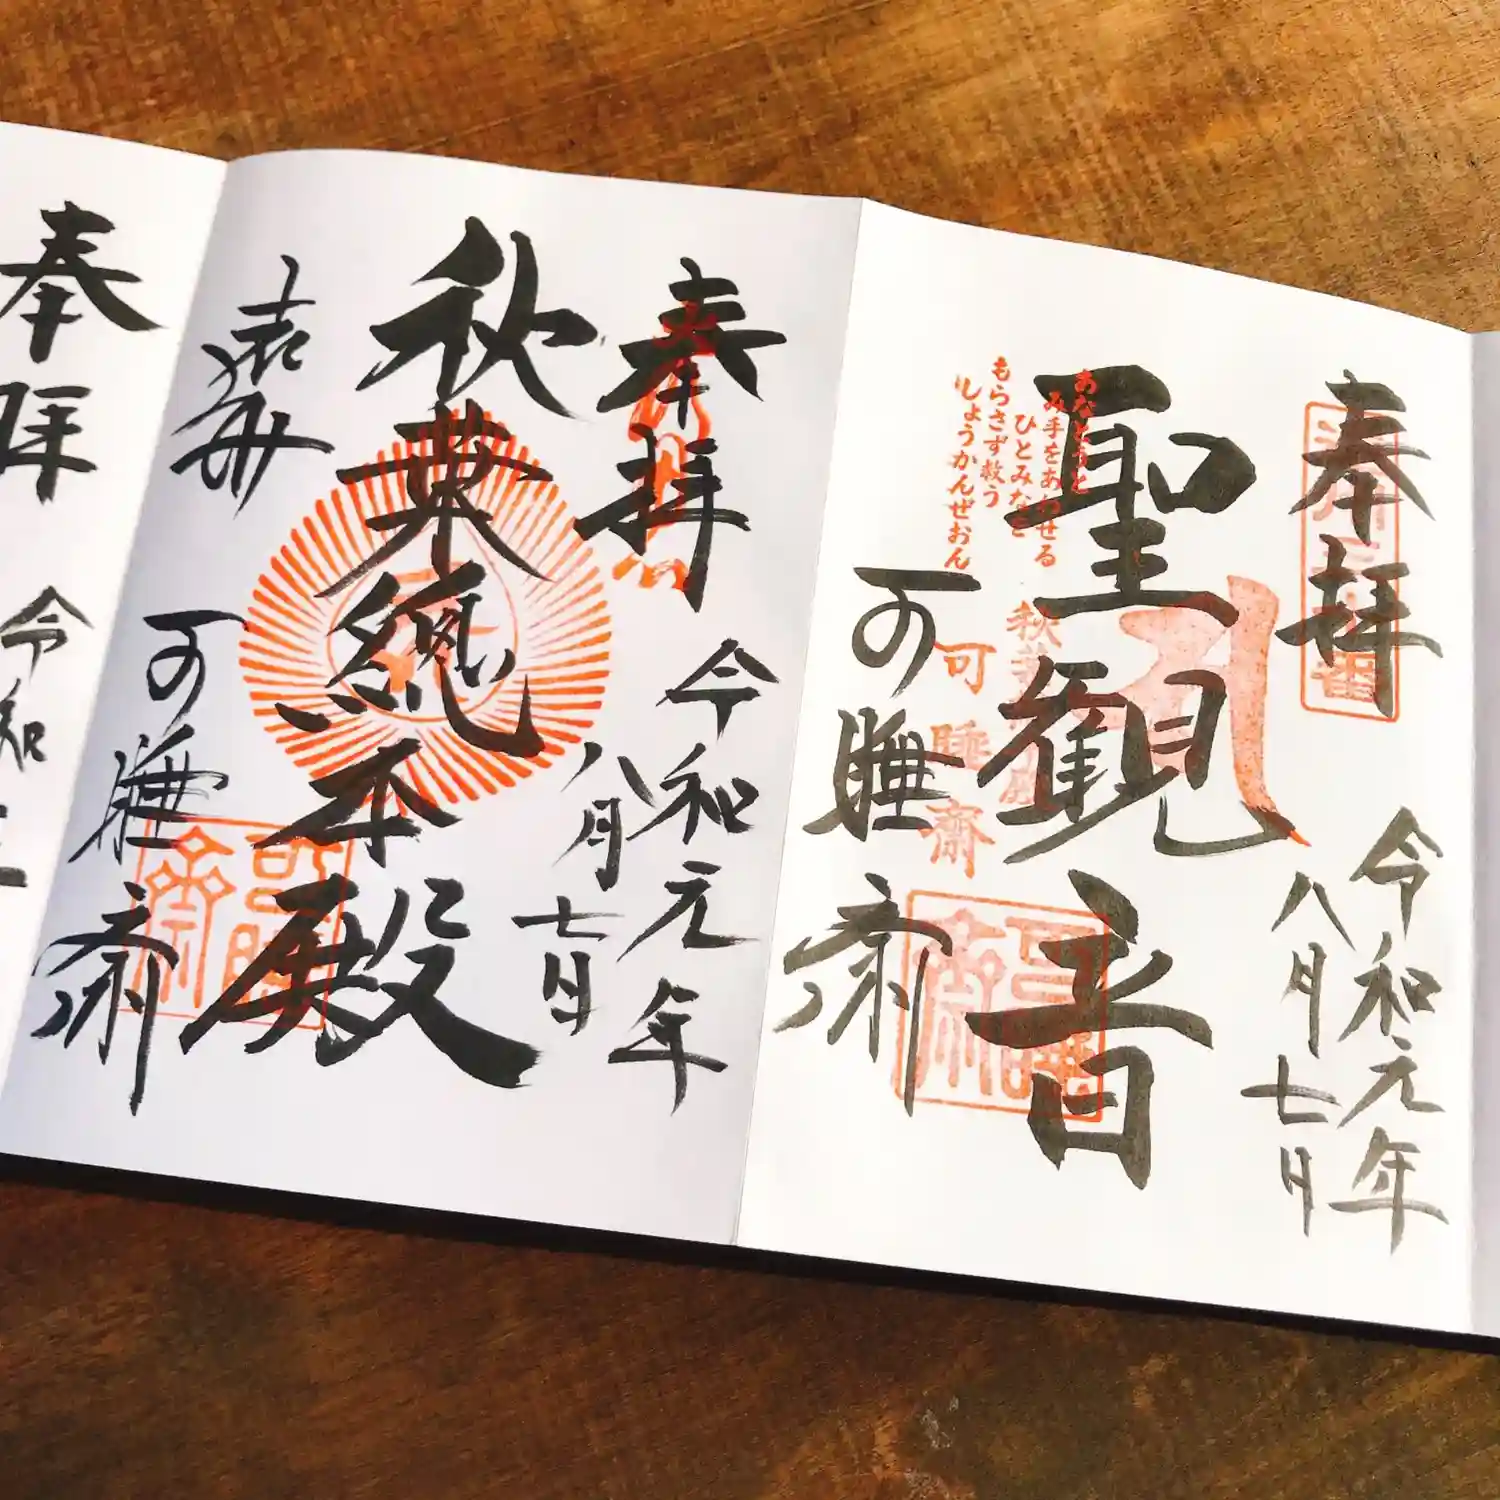 奉拝
令和元年
八月七日
聖観音
あなとうと
み手をあわせる
ひとみなを
もらさず救う
しょうかんぜおん
可睡斎
可睡斎
奉拝
令和元年
八月七日
秋葉總本殿
遠州
可睡斎
奉拝
令和